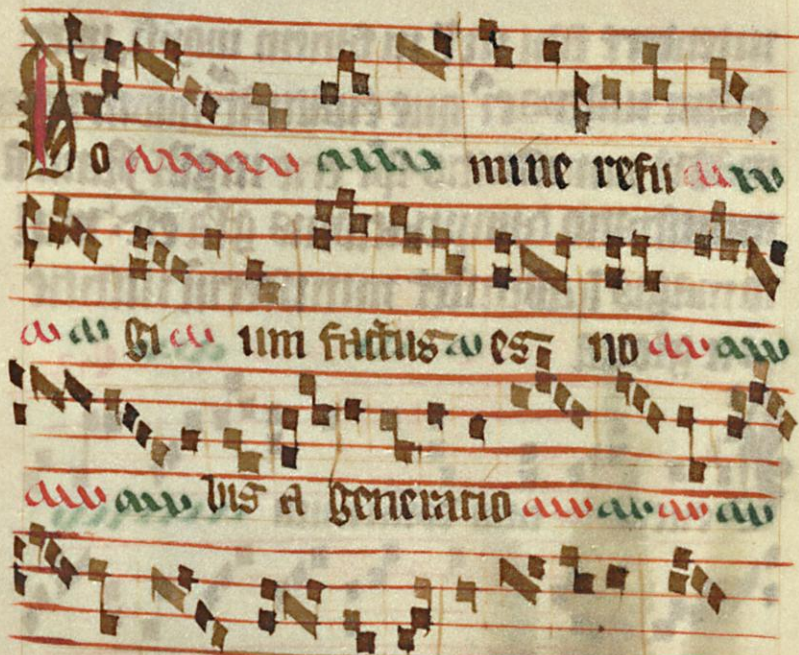 Do mine refu
gi um factus es no
bis a generatio